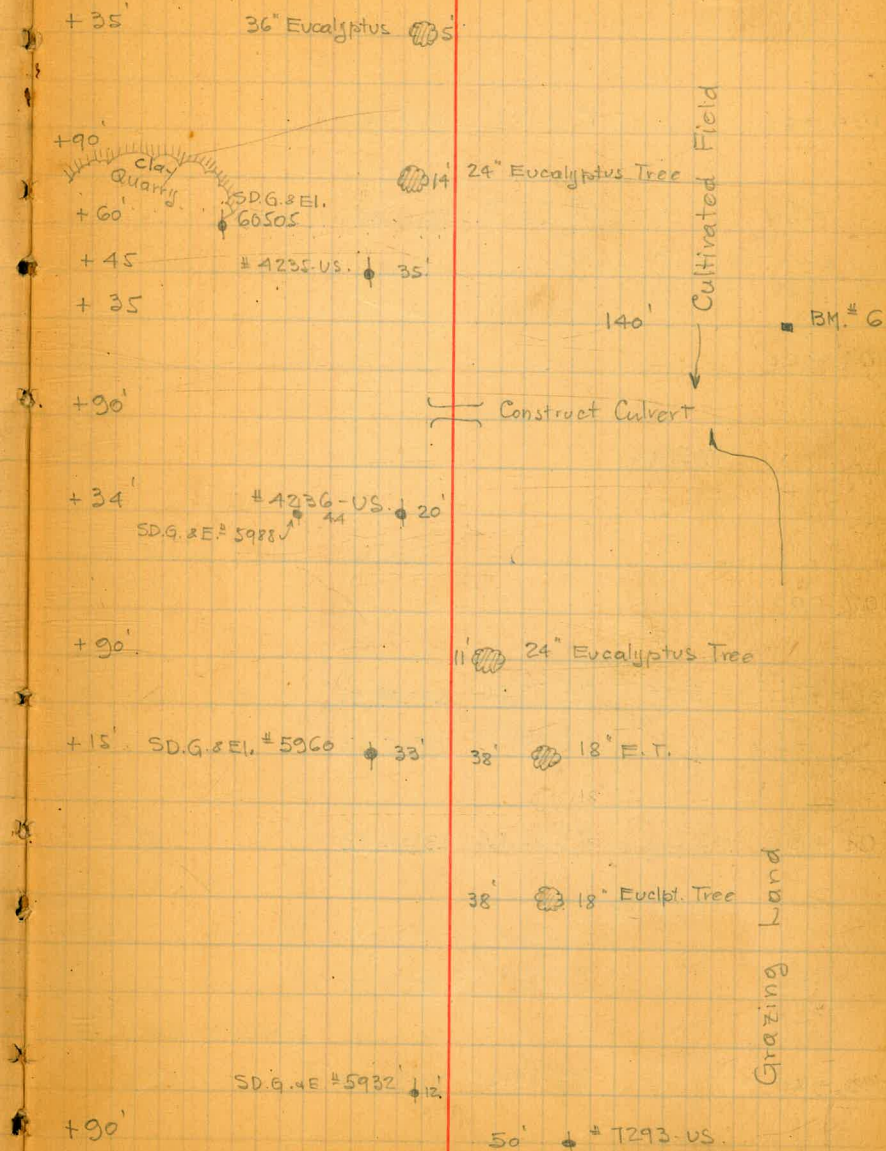 + 35'
36" Eucalyptus 5'
Cultivated Field
+90'
Clay
Quarry
14' 24" Eucalyptus Tree
SD.G.&El.
+ 60' 60505
+ 45 # 4235-US. 35'
+ 35 140' BM.# 6
+90' Construct Culvert
+ 34' # 4236-US. 20'
44
SD.G.&E.# 5988
+90' 11' 24" Eucalyptus Tree
+ 15' SD.G.&El. # 5960 33' 38' 18" E.T.
38' 18" Euclpt. Tree
Grazing Land
SD.G.&E #5932' 12'
+90' 50' # 7293-US.